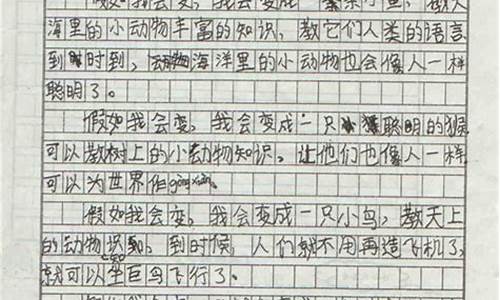 假如我会变,我会变成一条小鱼,教大
海里的小动物丰富的知识,教它们人类的语言
到时到,海洋里的小动物也会像人一样
聪明了。
假如我会变,我会变成一只聪明的猴
可以教树上的小动物知识,让他们也像人一样
可以为世界作gòng xiàn。
假如我会变,我会变成一只小鸟,教天上
的动物识知,到时候,人们就不用再造飞机了,
就可以坐巨鸟飞行了。